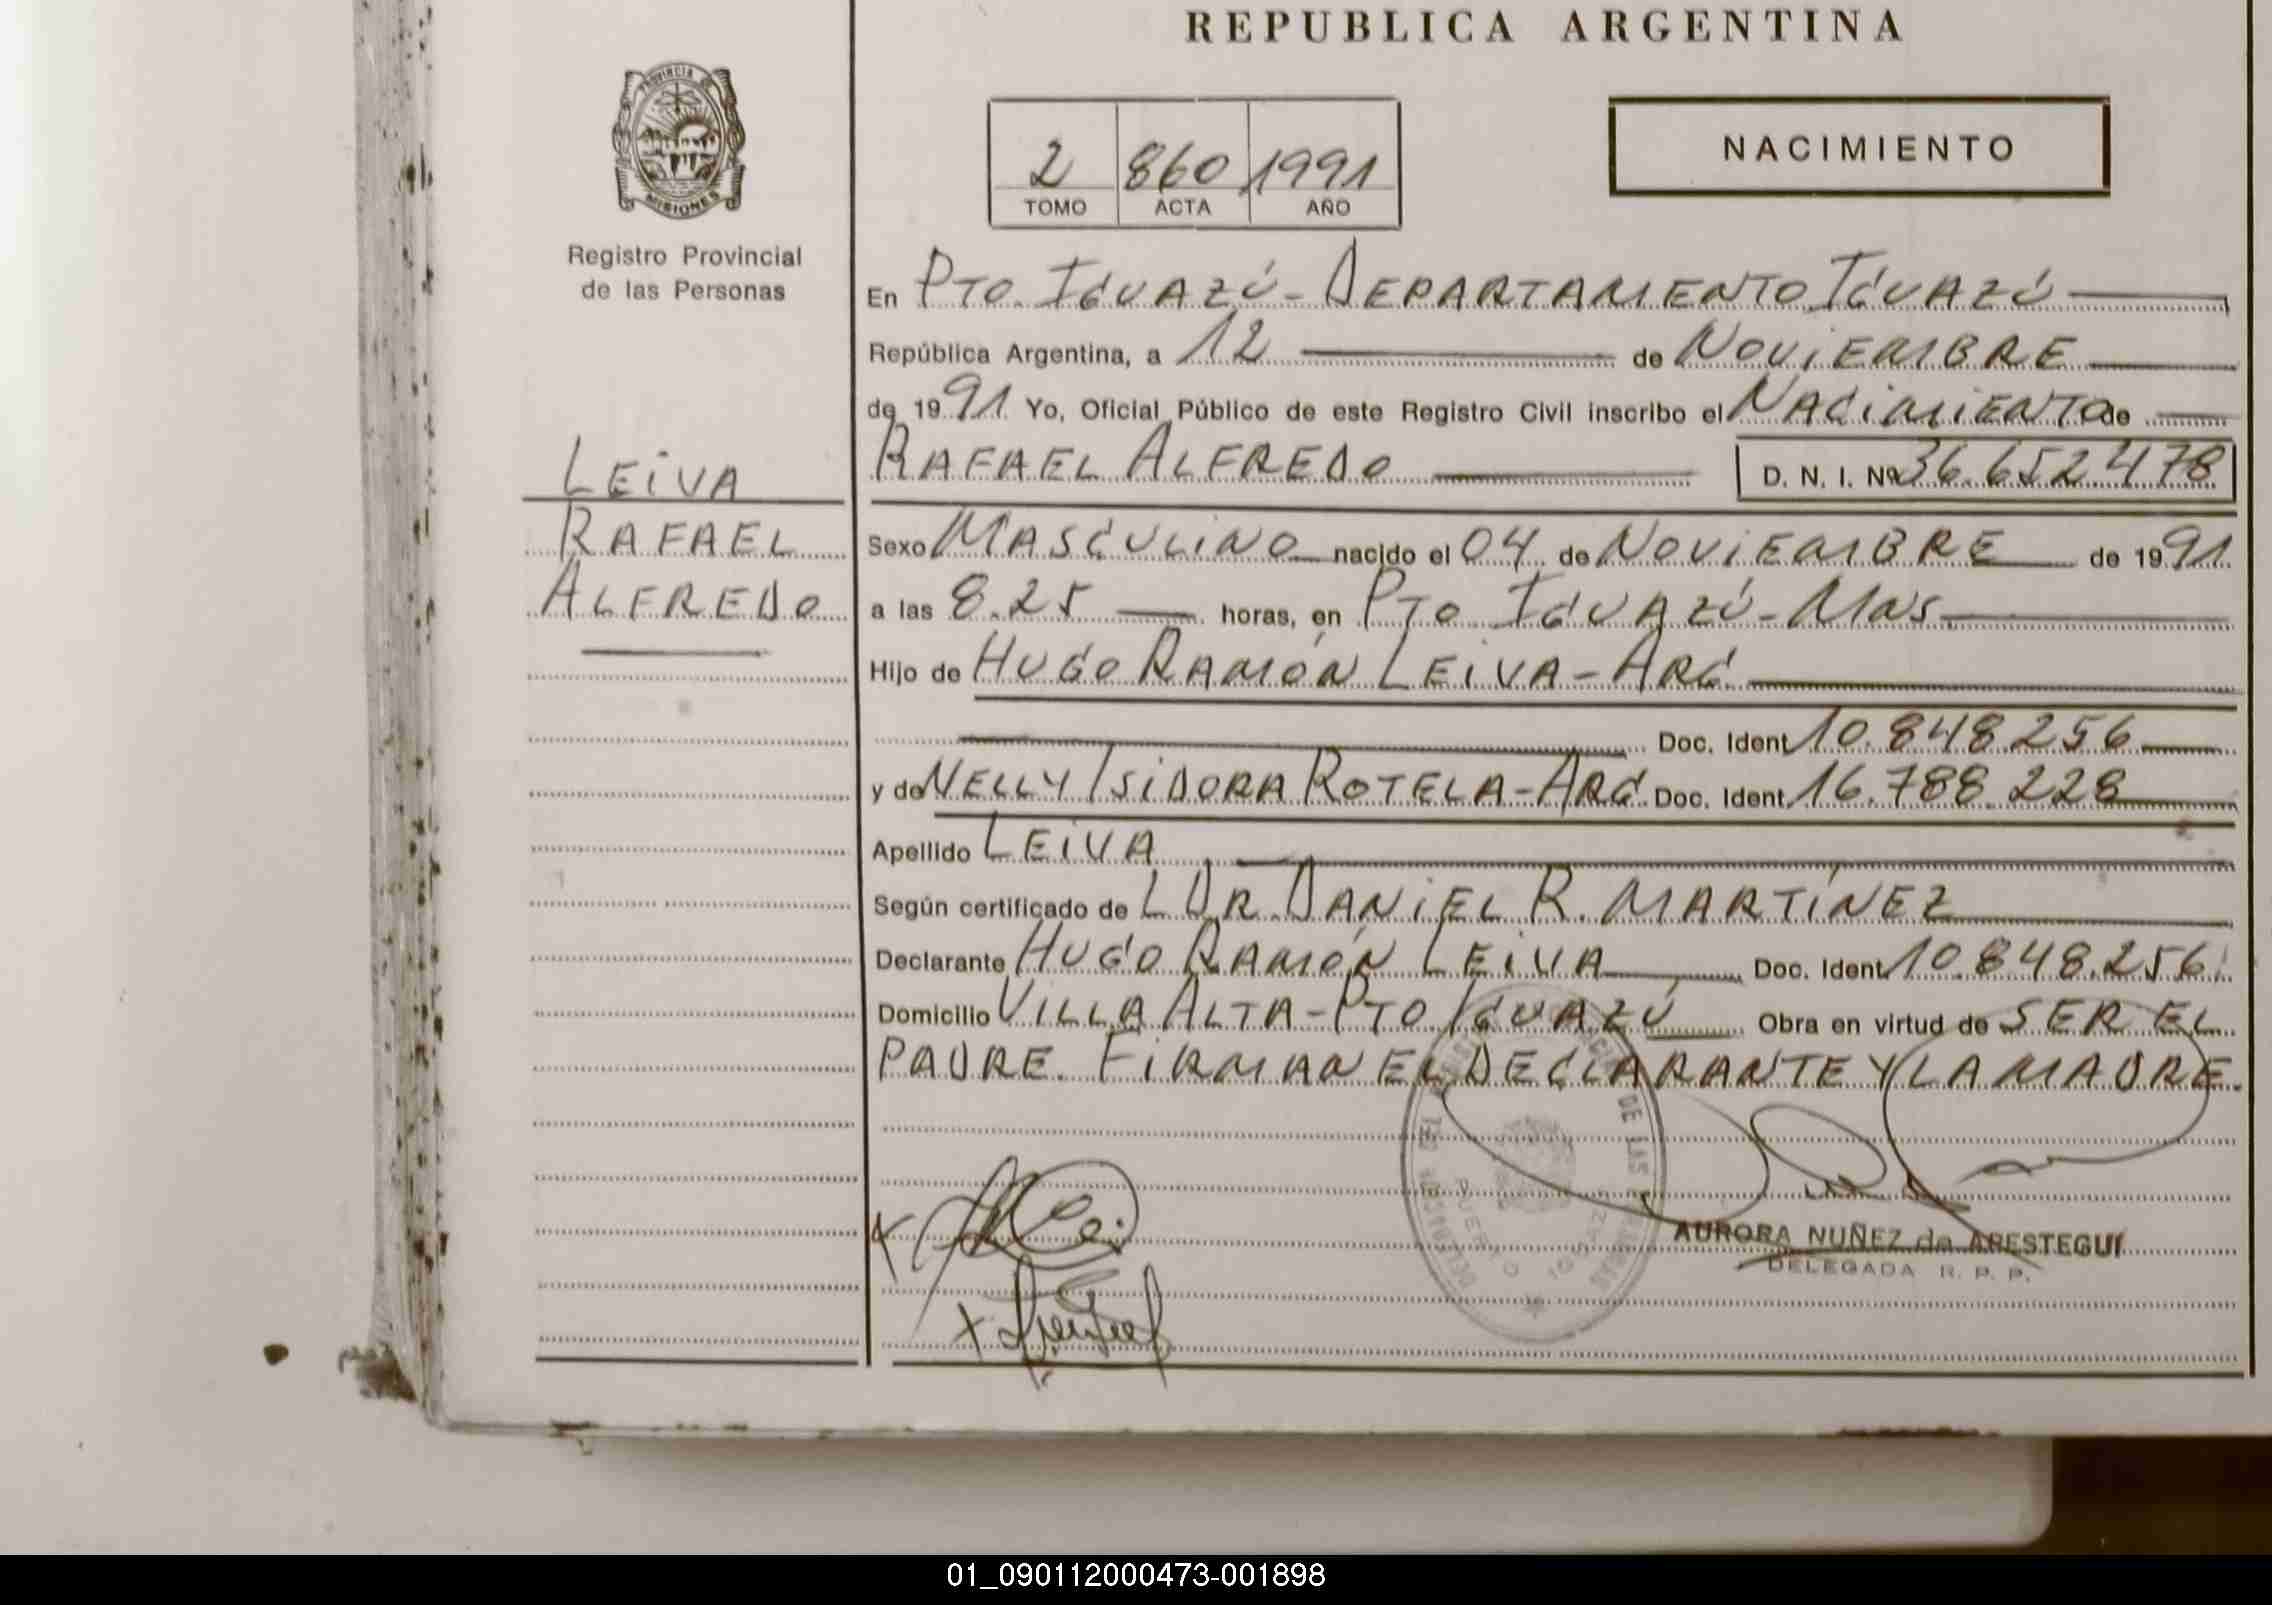 REPUBLICA ARGENTINA
PROVINCIA DE
MISIONES
Registro Provincial
de las Personas
2 860 1991
TOMO ACTA AÑO
NACIMIENTO
En Pto. Iguazú - Departamento Iguazú
República Argentina, a 12 de Noviembre
de 1991 Yo, Oficial Público de este Registro Civil inscribo el Nacimiento de
Rafael Alfredo D. N. I. Nº 36.652.478
Leiva
Rafael
Alfredo
Sexo Masculino nacido el 04 de Noviembre de 1991
a las 8.25 horas, en Pto Iguazú - Mns
Hijo de Hugo Ramón Leiva - Arg
Doc. Ident 10.848.256
y de Nelly Isidora Rotela - Arg Doc. Ident. 16.788.228
Apellido Leiva
Según certificado de L Dr. Daniel R. Martínez
Declarante Hugo Ramón Leiva Doc. Ident 10.848.256
Domicilio Villa Alta - Pto Iguazú Obra en virtud de ser el
padre. Firman el declarante y la madre.
AURORA NUÑEZ de ARESTEGUI
DELEGADA R. P. P.
01_090112000473-001898